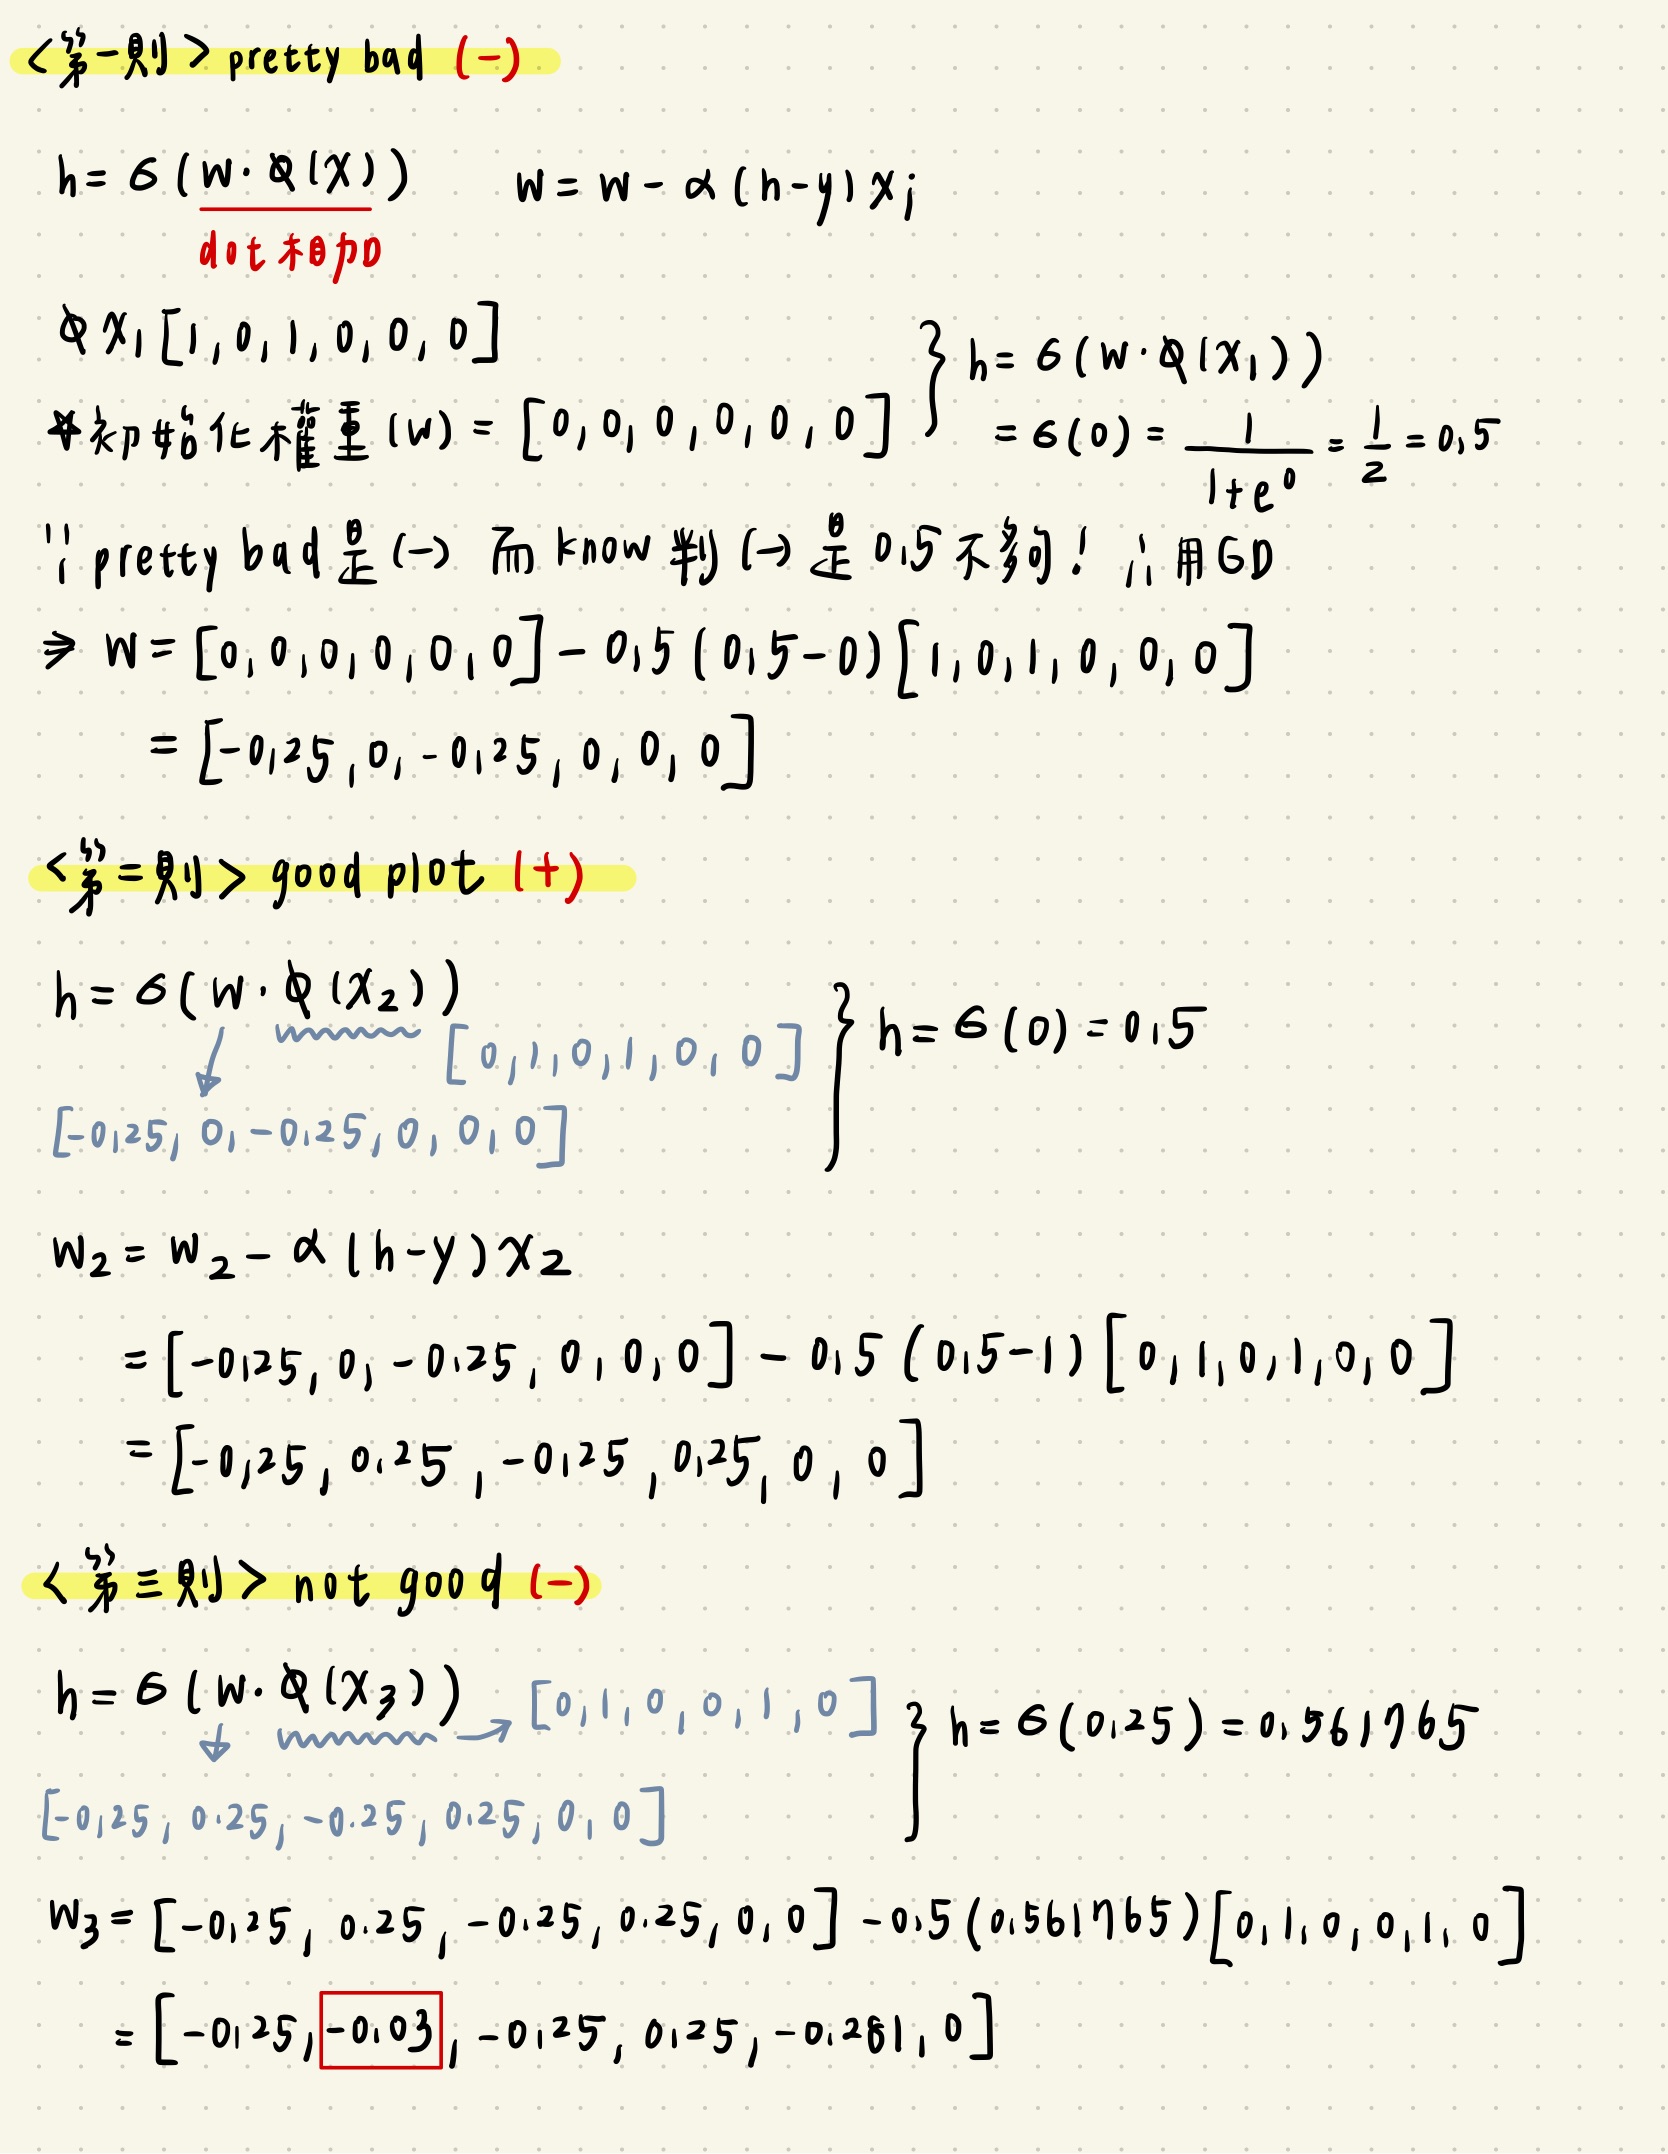 <第一則> pretty bad (-)
h = σ(w·φ(x)) w = w - α(h-y)xj
dot 相加
φx₁[1,0,1,0,0,0]
☆初始化權重(w) = [0,0,0,0,0,0] } h = σ(w·φ(x₁))
= σ(0) = 1/(1+e⁰) = 1/2 = 0.5
∵ pretty bad 是(-) 而 know 判(-) 是 0.5 不夠! ∴用GD
⇒ w = [0,0,0,0,0,0] - 0.5(0.5-0)[1,0,1,0,0,0]
= [-0.25,0,-0.25,0,0,0]
<第二則> good plot (+)
h = σ(w·φ(x₂)) } h = σ(0) = 0.5
[0,1,0,1,0,0]
[-0.25,0,-0.25,0,0,0]
w₂ = w₂ - α(h-y)x₂
= [-0.25,0,-0.25,0,0,0] - 0.5(0.5-1)[0,1,0,1,0,0]
= [-0.25,0.25,-0.25,0.25,0,0]
<第三則> not good (-)
h = σ(w·φ(x₃)) → [0,1,0,0,1,0] } h = σ(0.25) = 0.561765
[-0.25,0.25,-0.25,0.25,0,0]
w₃ = [-0.25,0.25,-0.25,0.25,0,0] - 0.5(0.561765)[0,1,0,0,1,0]
= [-0.25,-0.03,-0.25,0.25,-0.281,0]